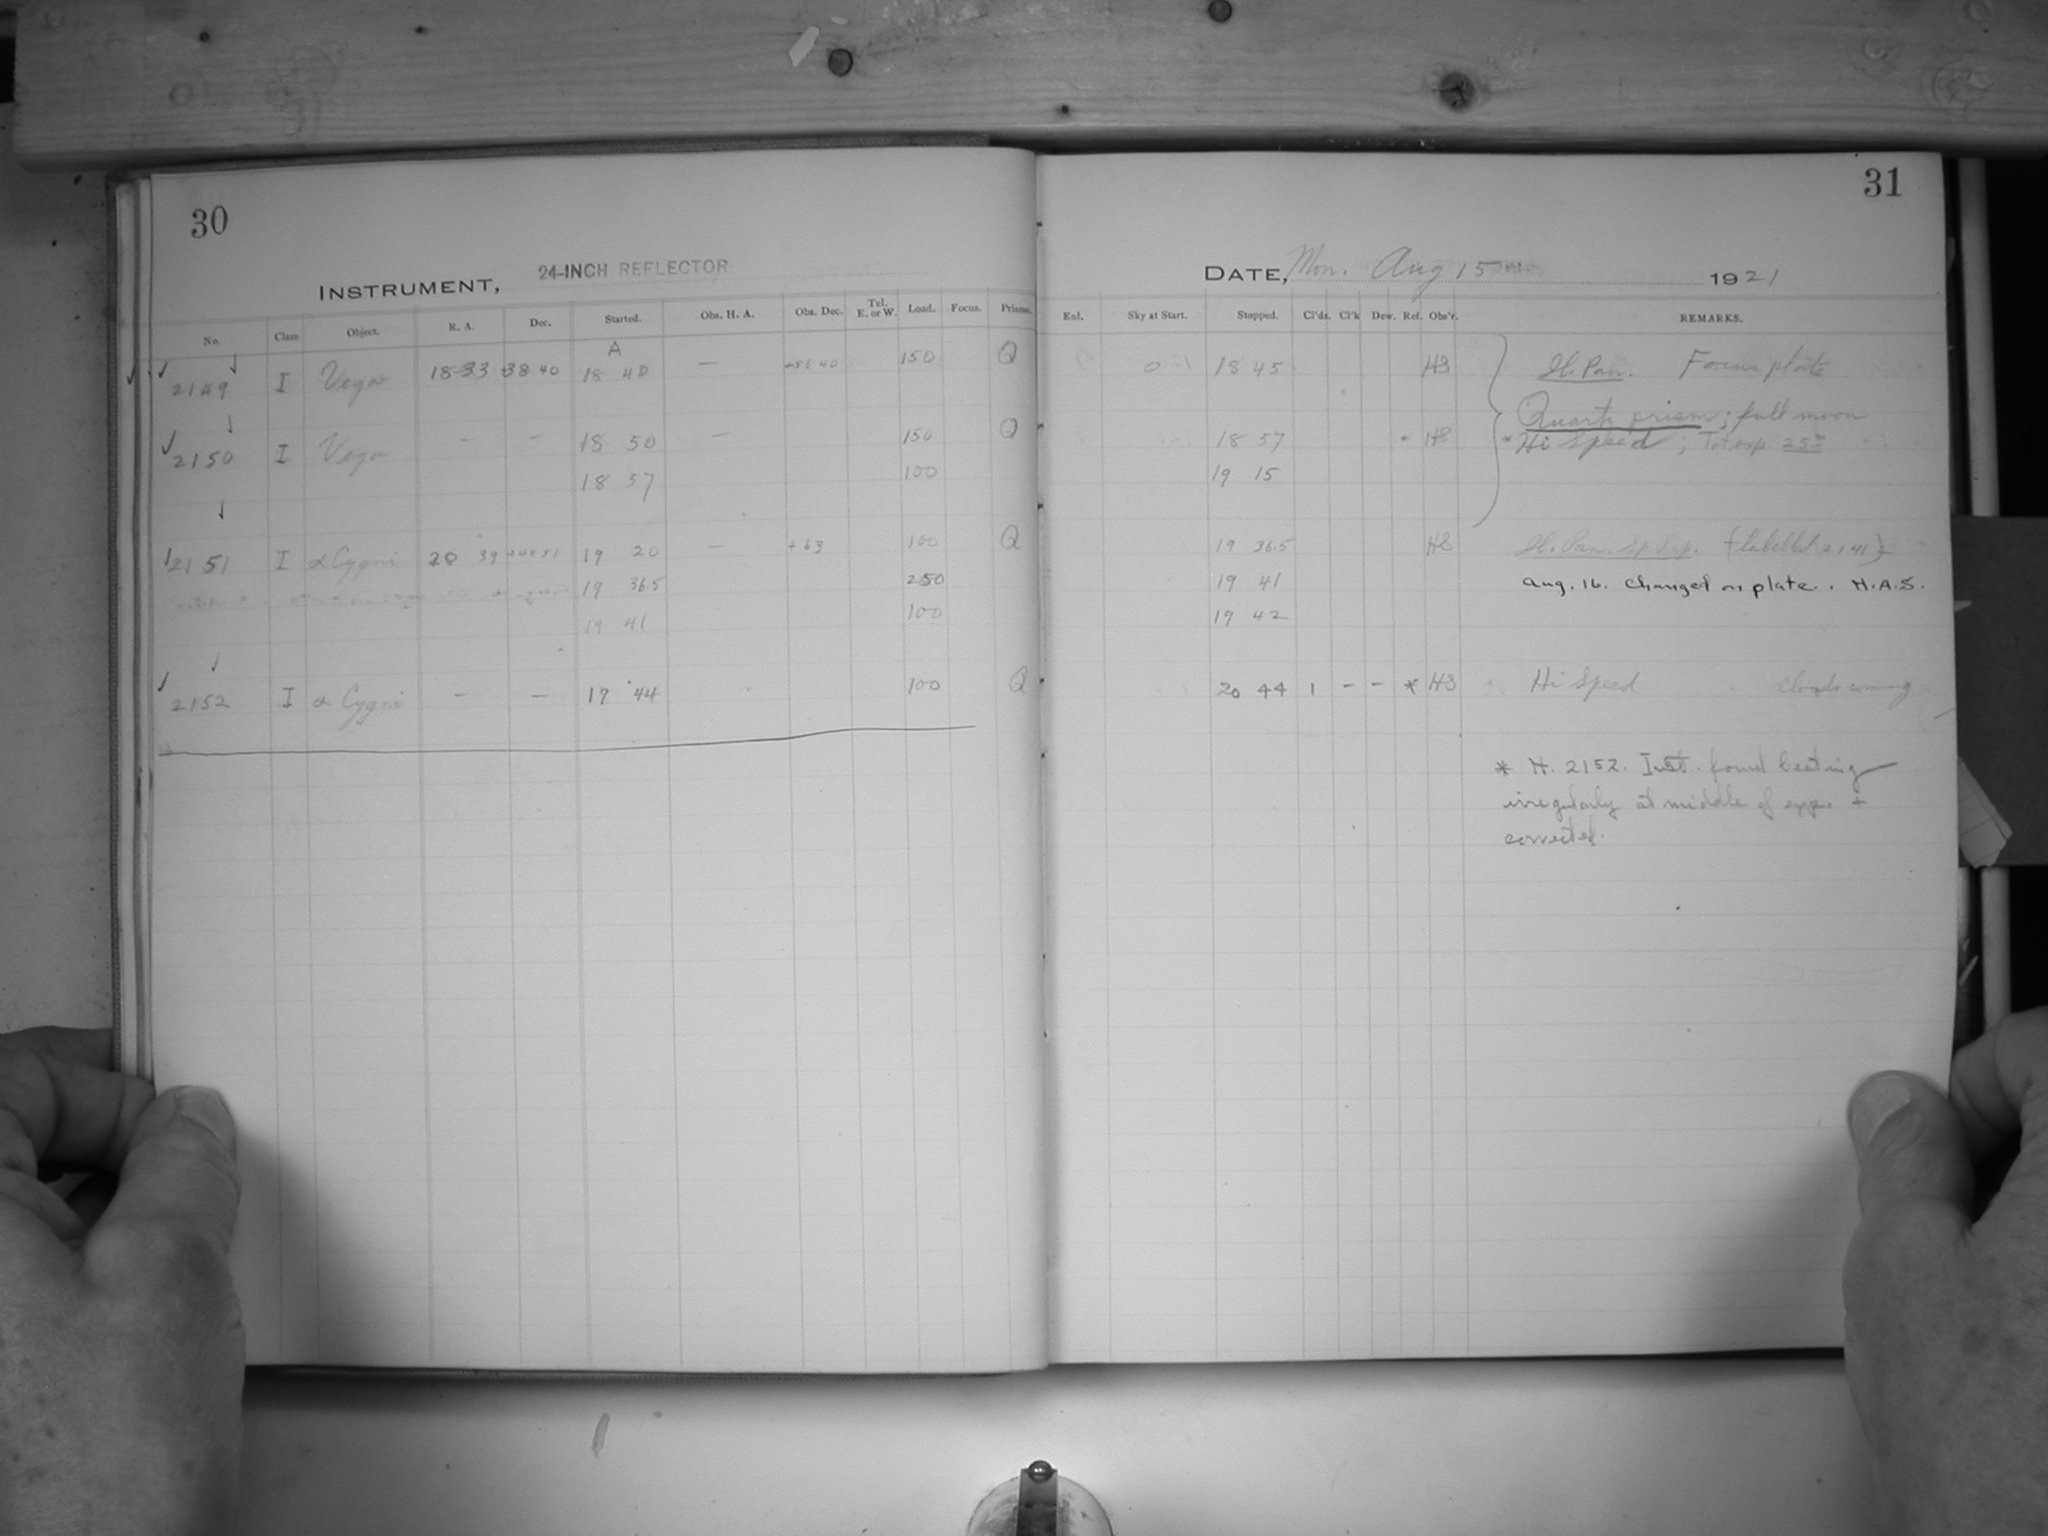 30
INSTRUMENT, 24-INCH REFLECTOR
No. Class. Object. R. A. Dec. Started. Obs. H. A. Obs. Dec. Tel. E. or W. Load. Focus. Prisms.
A
2149 I Vega 18 33 +38 40 18 40 — 150 Q
2150 I Vega - - 18 50 — 150 Q
18 57 100
2151 I α Cygni 20 39 +44 51 19 20 — +63 100 Q
19 36.5 250
19 41 100
2152 I α Cygni - - 19 44 100 Q
31
DATE, Mon. Aug 15 1921
Eal. Sky at Start. Stopped. Cl'ds. Cl'k Dew. Ref. Obs'r. REMARKS.
18 45 HS Il. Pan. Focus plate
Quartz prism; full moon
18 57 HS Hi Speed; Tot. exp. 25m
19 15
19 36.5 HS Il. Pan. Sp. (labelled 2141)
19 41 Aug. 16. Changed on plate. H.A.S.
19 42
20 44 1 - - * HS Hi Speed Clouds coming
* H. 2152. Inst. found beating
irregularly at middle of exp. +
corrected.